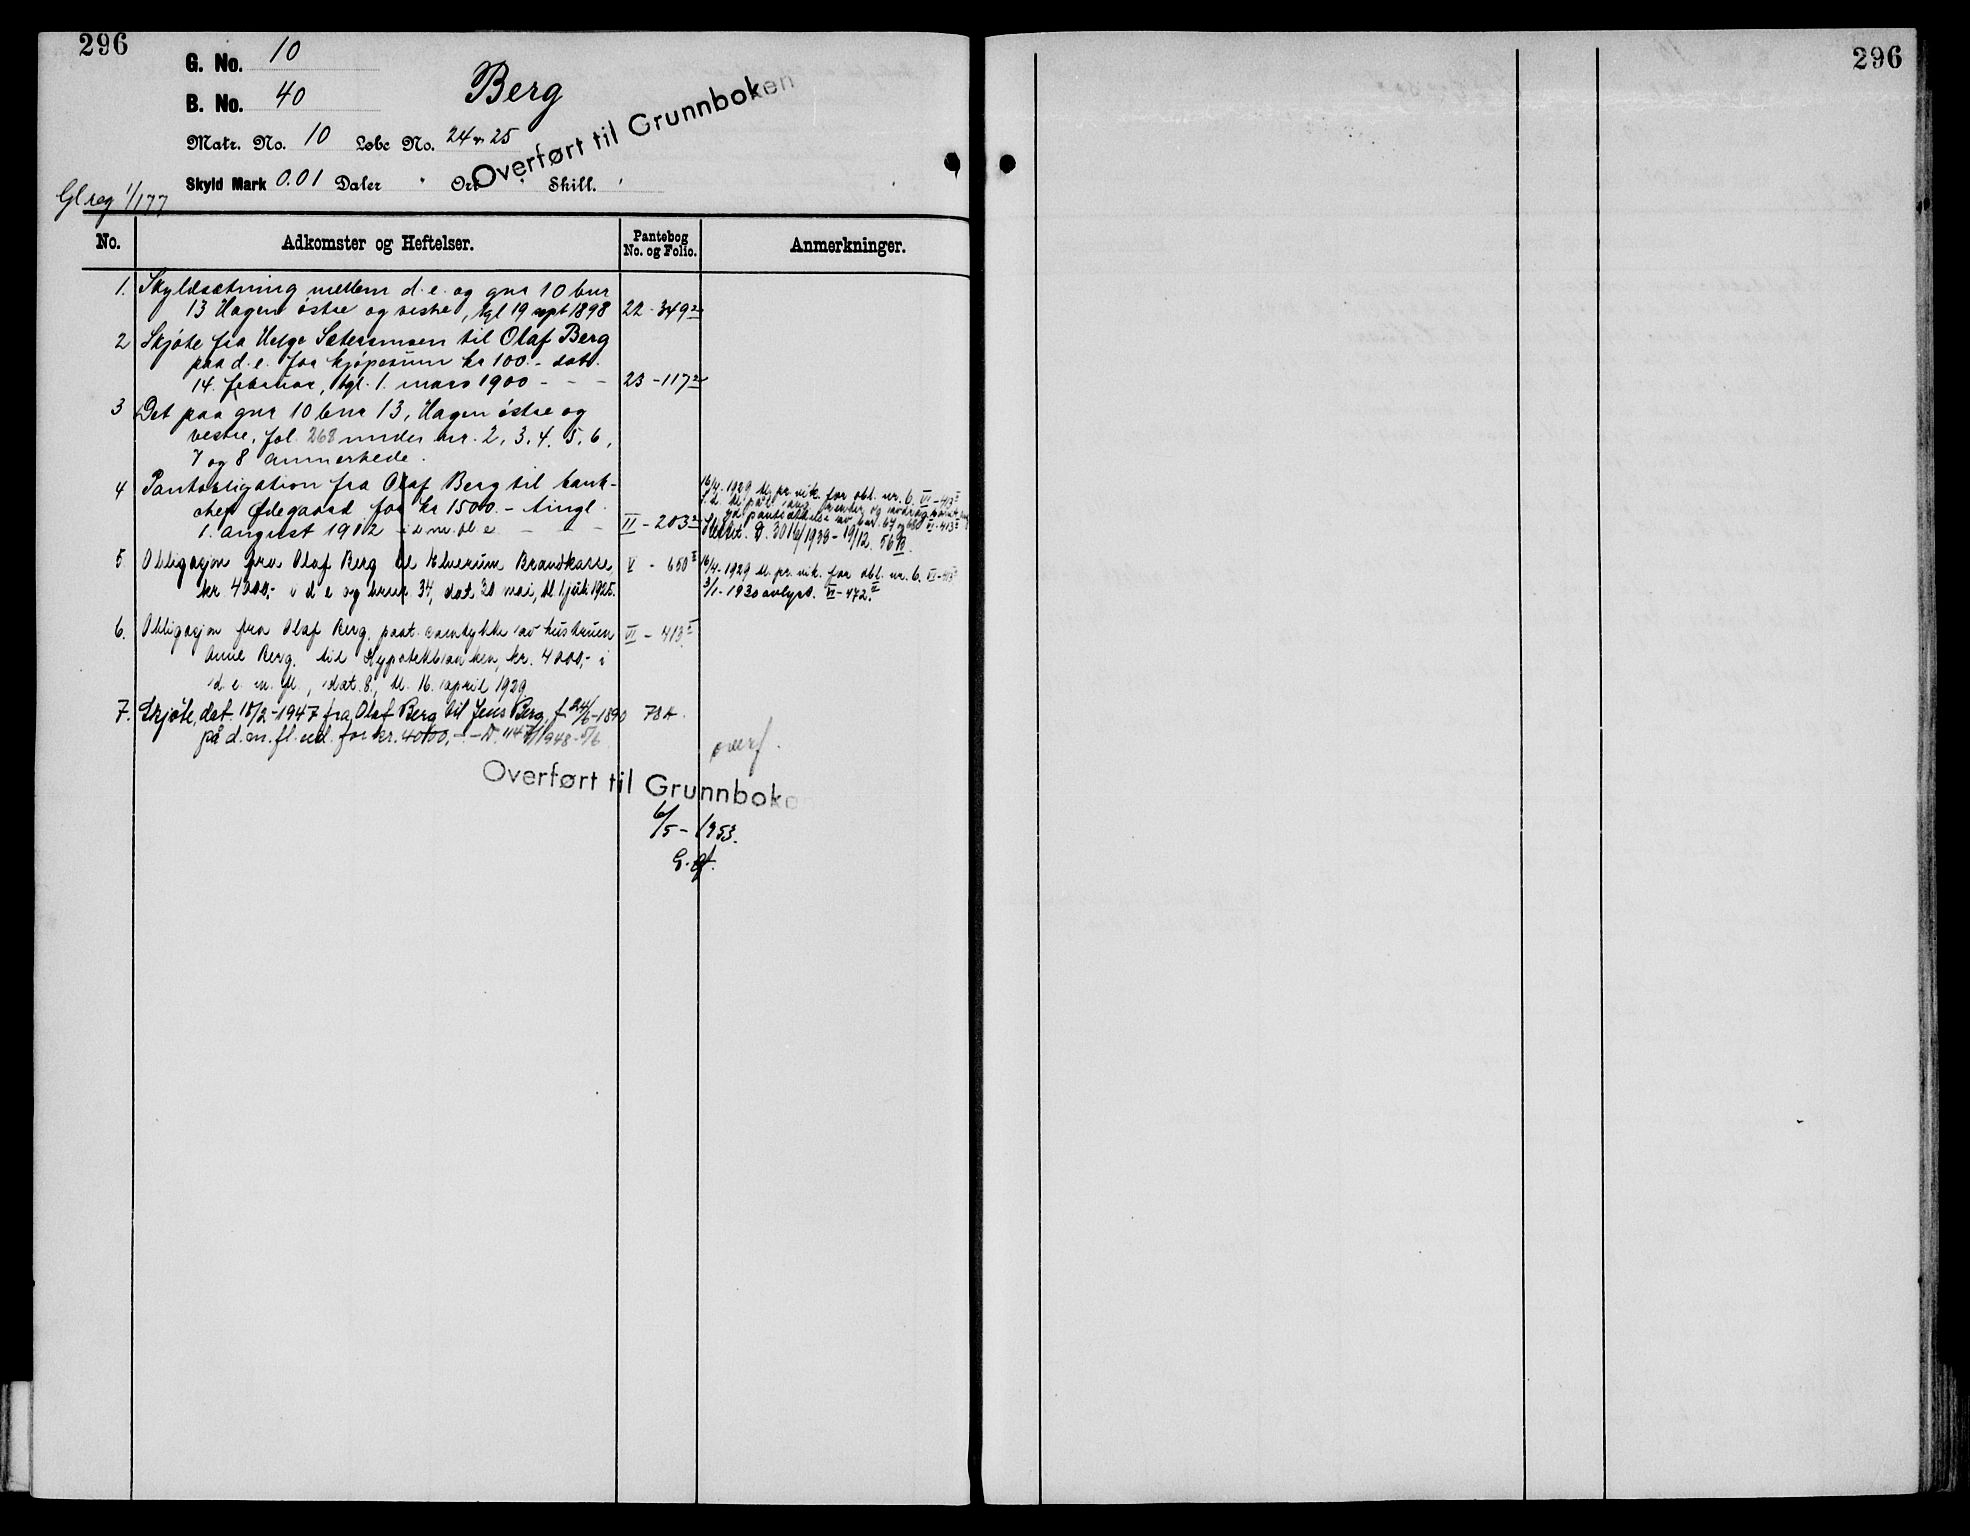 296
296
G. No. 10
B. No. 40
Berg
Overført til Grunnboken
Matr. No. 10 Løbe No. 24 v. 25
Skyld Mark 0.01 Daler " Ort " Skill. "
Gl reg 1/177
No. Adkomster og Heftelser. Pantebog No. og Folio. Anmerkninger.
1. Skyldsætning mellem d. e. og gnr 10 bnr
13 Hagen østre og vestre, tgl 19 sept 1898 22 - 349
2 Skjøte fra Helge Sætersmoen til Olaf Berg
paa d. e. for kjøpesum kr 100.- dat.
14. februar, tgl. 1. mars 1900 - - - 23 - 117
3 Det paa gnr 10 bnr 13, Hagen østre og
vestre, fol. 268 under nr. 2, 3, 4, 5, 6,
7 og 8 anmerkede.
4 Pantobligation fra Olaf Berg til
Ødegaard for kr 1500.- tingl.
1. august 1912 i d. e. m. fl. - - II - 203
16/4. 1929 tl. pr. vik. for obl. nr. 6. VI - 413
av bnr. 67 og 68 VI - 413
Slettet. D. 3016/1933 - 19/12. 56 B.
5 Obligasjon fra Olaf Berg til Elverum Brandkasse,
kr 4000,- i d e og bnr 34, dat 30 mai, tl 1 juli 1925. V - 650
16/4 - 1929 tl. pr. vik. for obl. nr. 6. VI - 413
3/1 - 1930 avlyst. VI - 472.
6. Obligasjon fra Olaf Berg, paat. samtykke av hustruen
Anne Berg, til Hypotekbanken, kr. 4000,- i
d. e. m. fl., dat. 8., tl. 16. april 1929 VI - 413
7. Skjøte, dat. 18/2 - 1947 fra Olaf Berg til Jens Berg, f. 24/6 - 1890
på d. e. m. fl. eid. for kr. 4000,- - D. 1147/1948 - 5/6 78 A.
overf.
Overført til Grunnboken
6/5 - 1953.